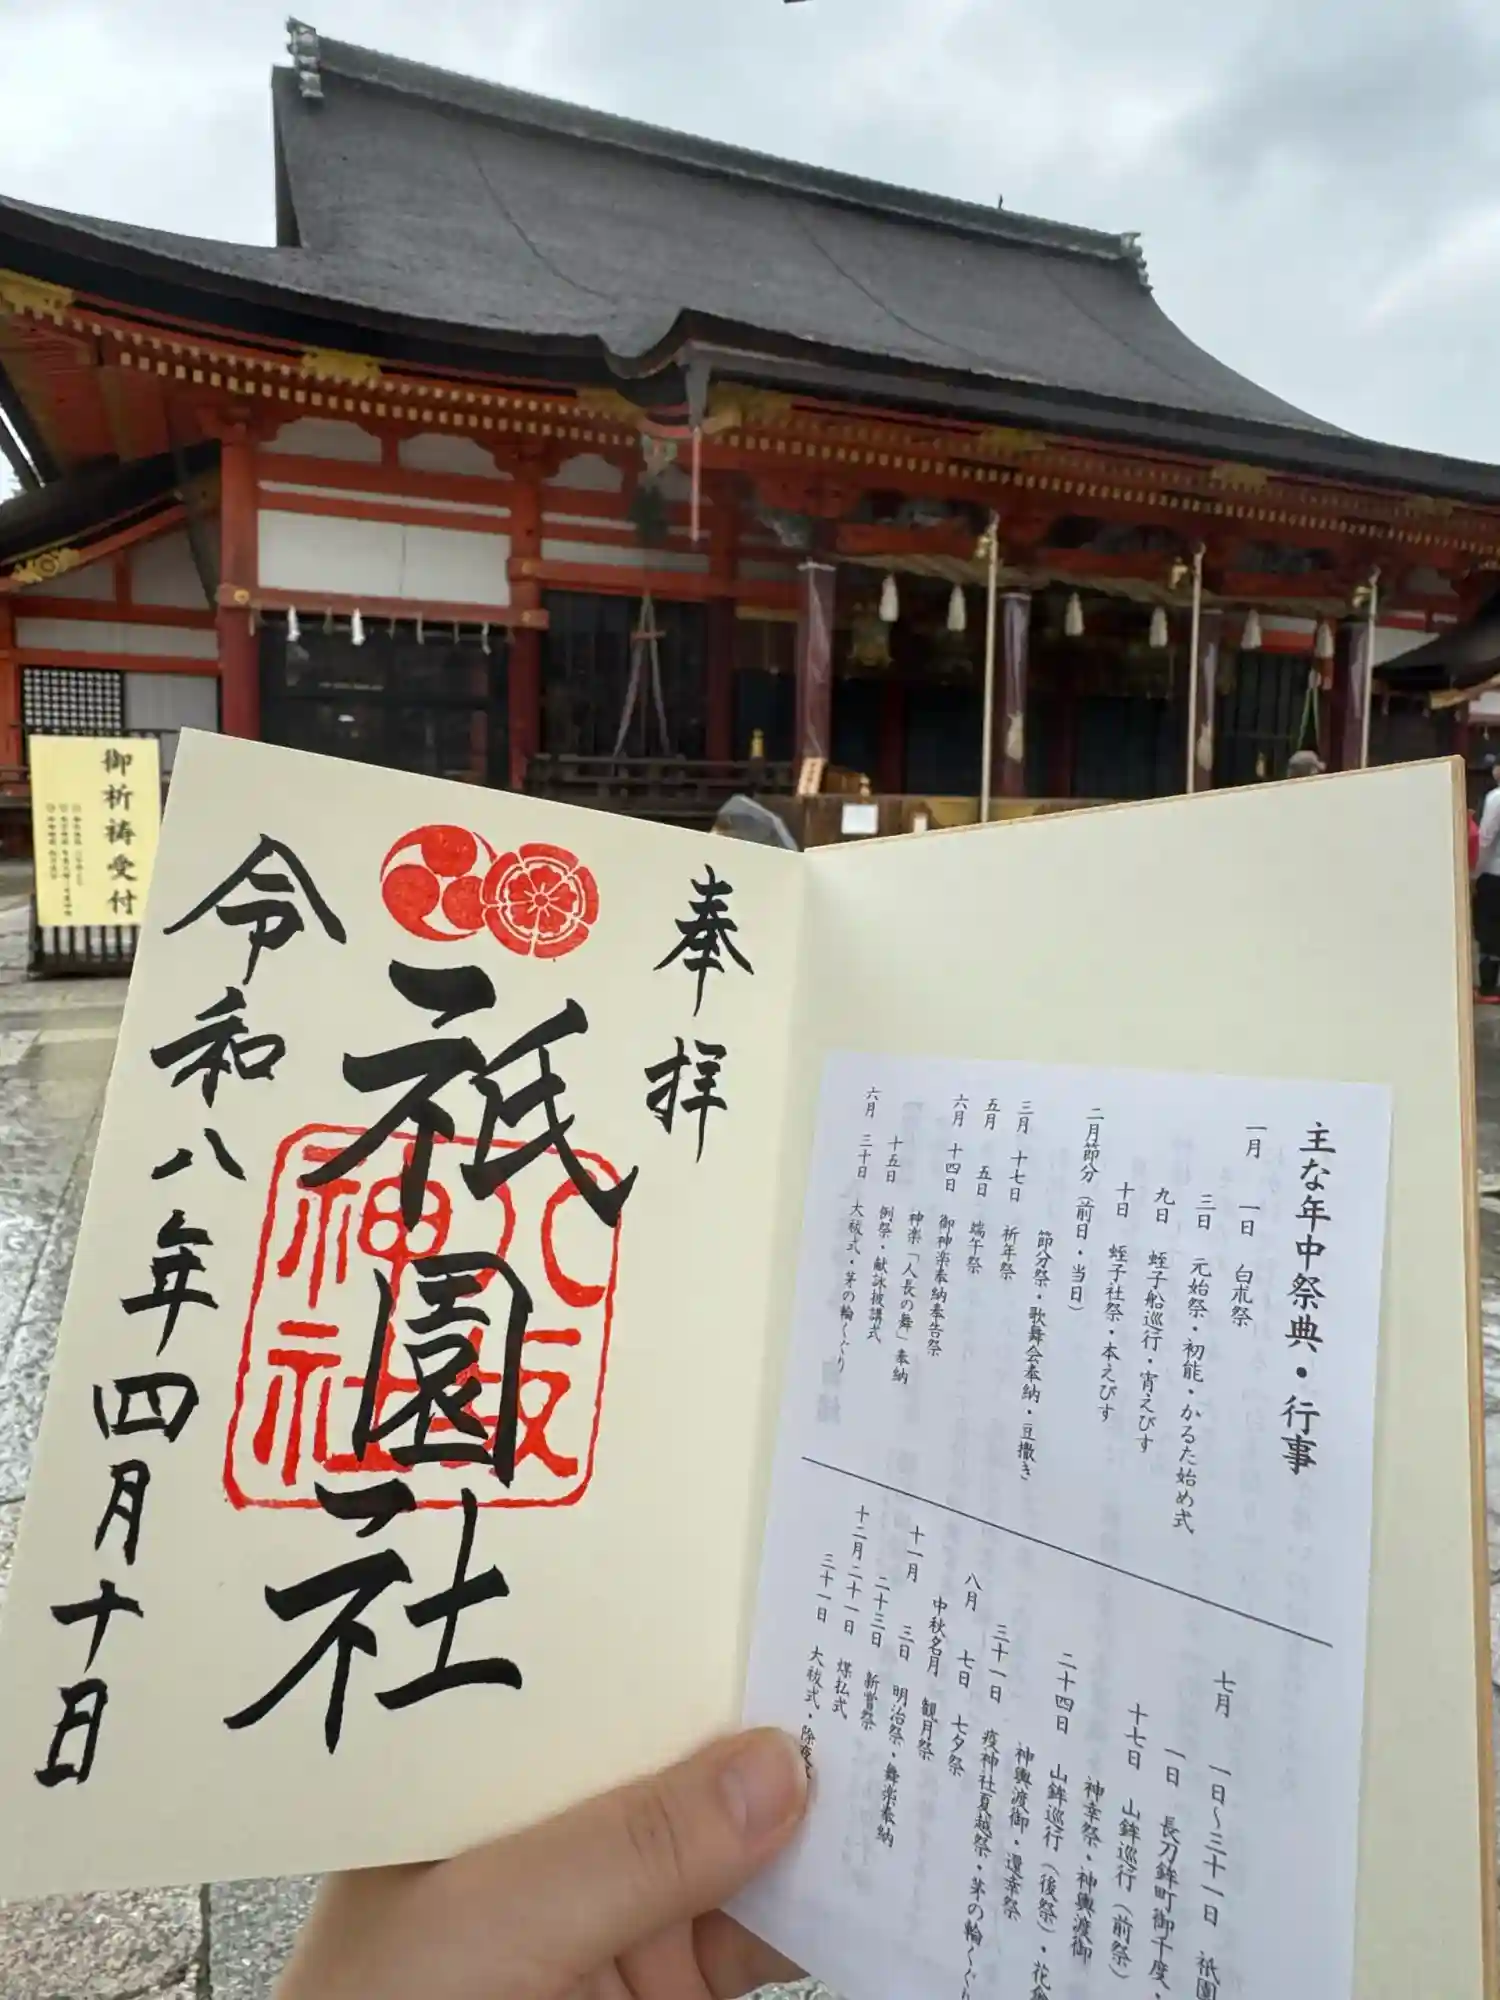 御祈祷受付
奉拝
祇園社
八坂神社
令和八年四月十日
主な年中祭典・行事
一月 一日 白朮祭
三日 元始祭・初能・かるた始め式
九日 蛭子船巡行・宵えびす
十日 蛭子社祭・本えびす
二月節分(前日・当日)
節分祭・歌舞会奉納・豆撒き
三月 十七日 祈年祭
五月 五日 端午祭
六月 十四日 御神楽奉納奉告祭
神楽「人長の舞」奉納
十五日 例祭・献詠披講式
六月 三十日 大祓式・茅の輪くぐり
七月 一日〜三十一日 祇園
一日 長刀鉾町御千度・
十七日 山鉾巡行(前祭)
神幸祭・神輿渡御
二十四日 山鉾巡行(後祭)・花傘
神輿渡御・還幸祭
三十一日 疫神社夏越祭・茅の輪くぐり
八月 七日 七夕祭
中秋名月 観月祭
十一月 三日 明治祭・舞楽奉納
二十三日 新嘗祭
十二月二十一日 煤払式
三十一日 大祓式・除夜祭